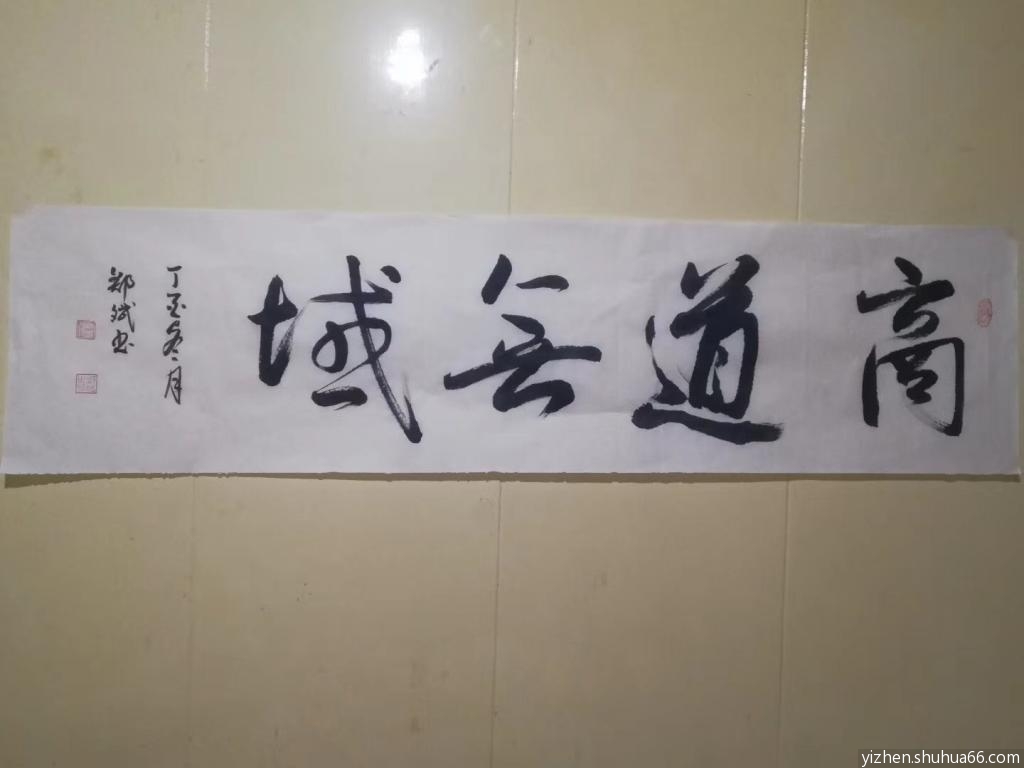 商道無域
丁酉冬月
郑斌书
yizhen.shuhua66.com